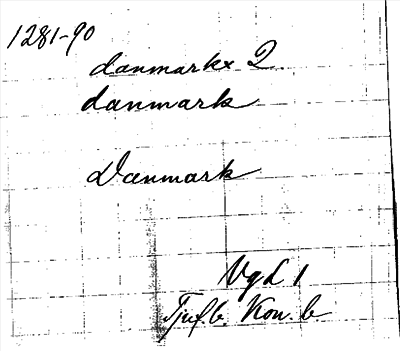 1281-90
danmarkx 2
danmark
Danmark
Vgd 1
Tjufb. Kon. b.